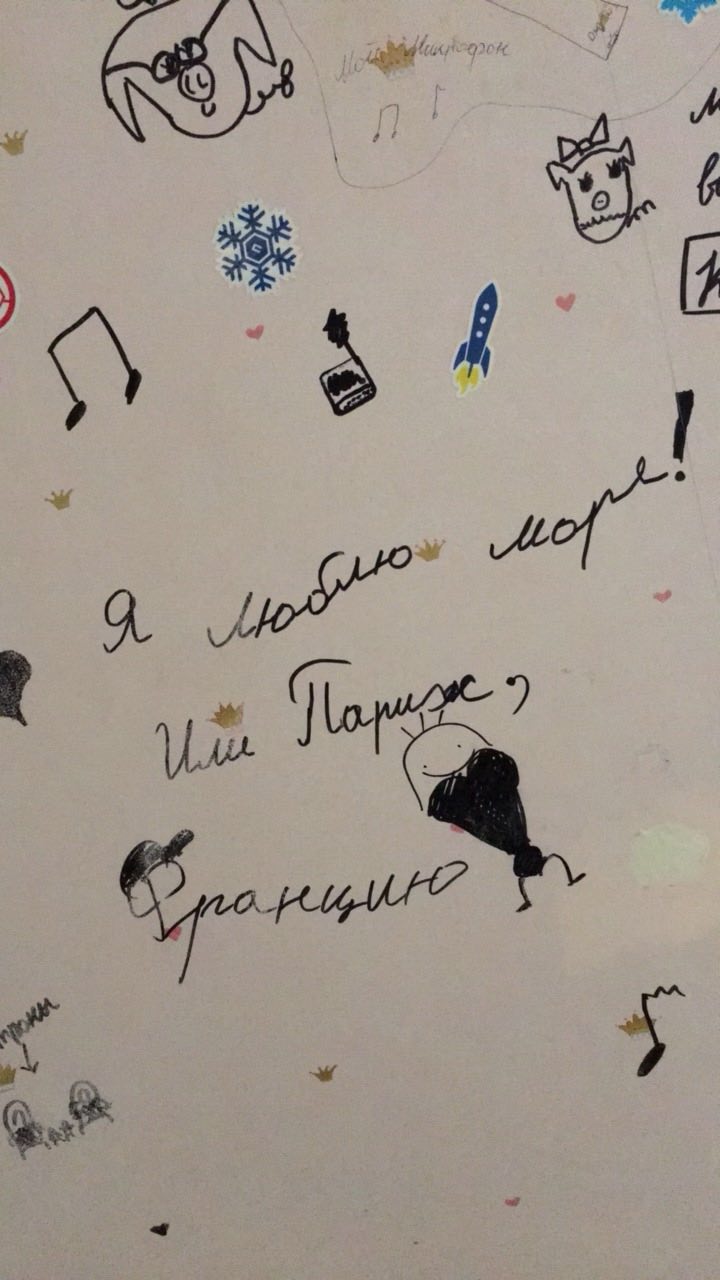 Мой Микрофон
Я люблю море!
Или Париж,
Францию